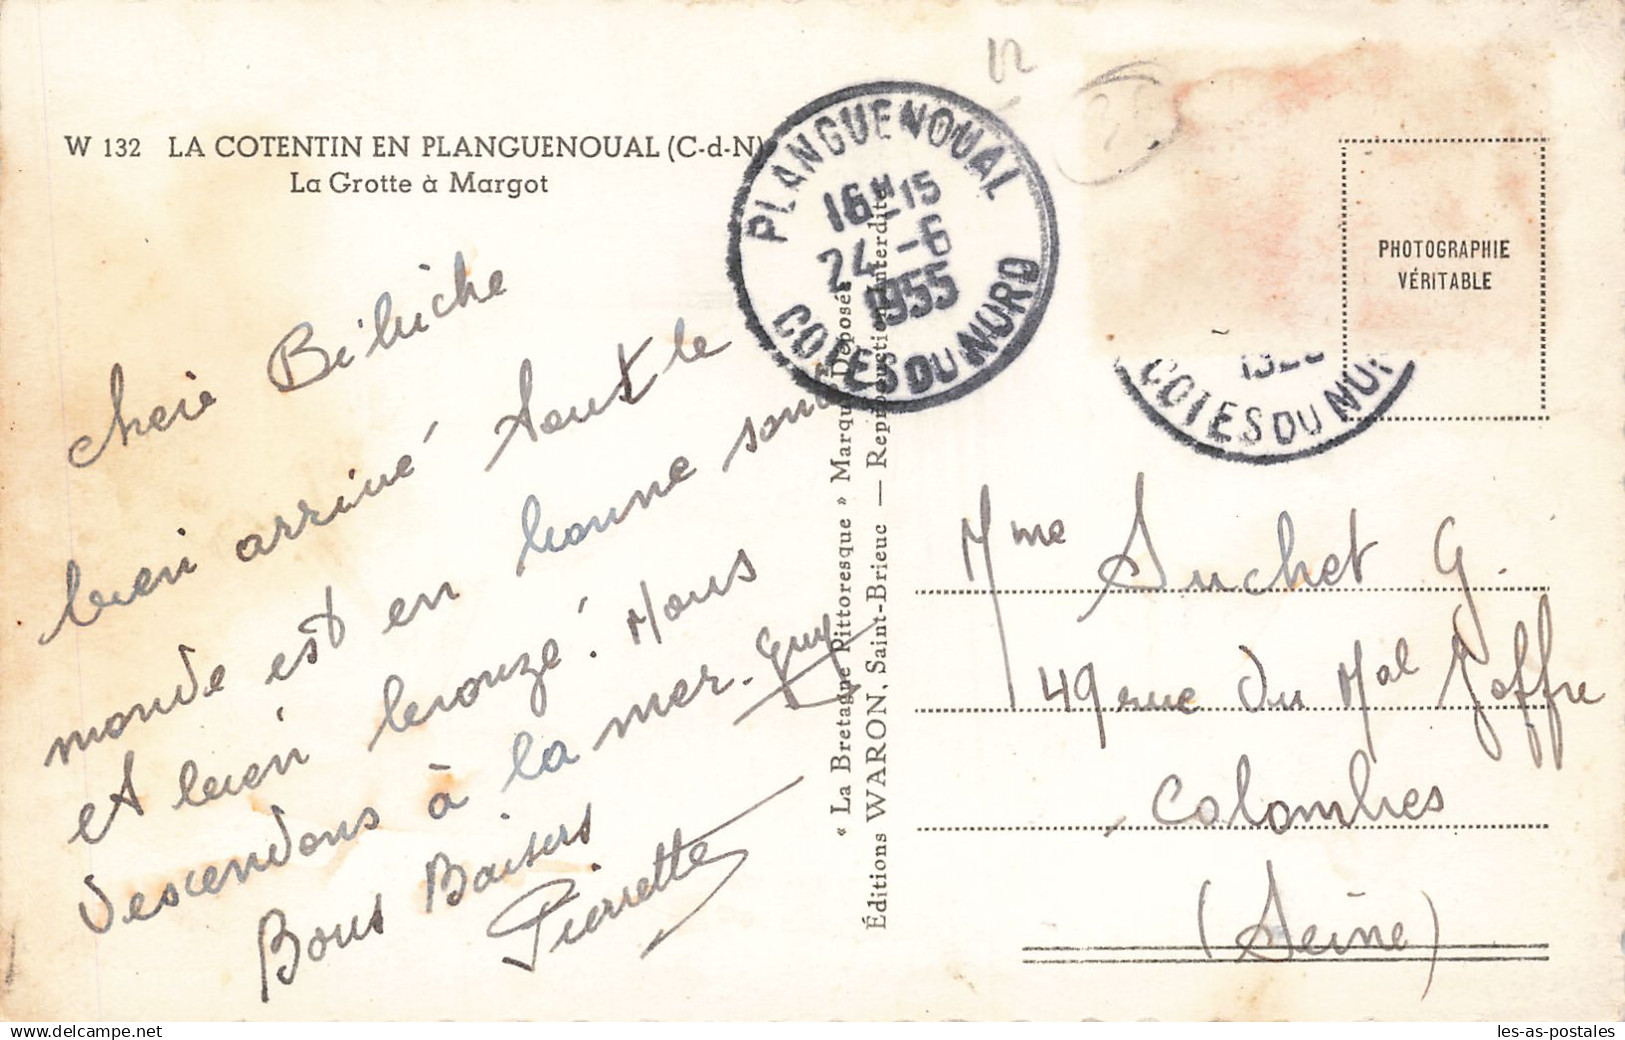 W 132 LA COTENTIN EN PLANGUENOUAL (C-d-N)
La Grotte à Margot
PLANGUENOUAL
16H15
24 -6
1955
COTES DU NORD
PHOTOGRAPHIE
VÉRITABLE
COTES DU NOR
cherie
bien arrivé tout le
monde est en bonne santé
et bien bronzé! Nous
descendons à la mer. Guy
Bons Baisers
Pierrette
« La Bretagne Pittoresque » Marque Déposée
Éditions WARON, Saint-Brieuc — Reproduction Interdite
Mme Suchet G.
49 rue du Mal Joffre
Colombes
(Seine)
les-as-postales
delcampe.net